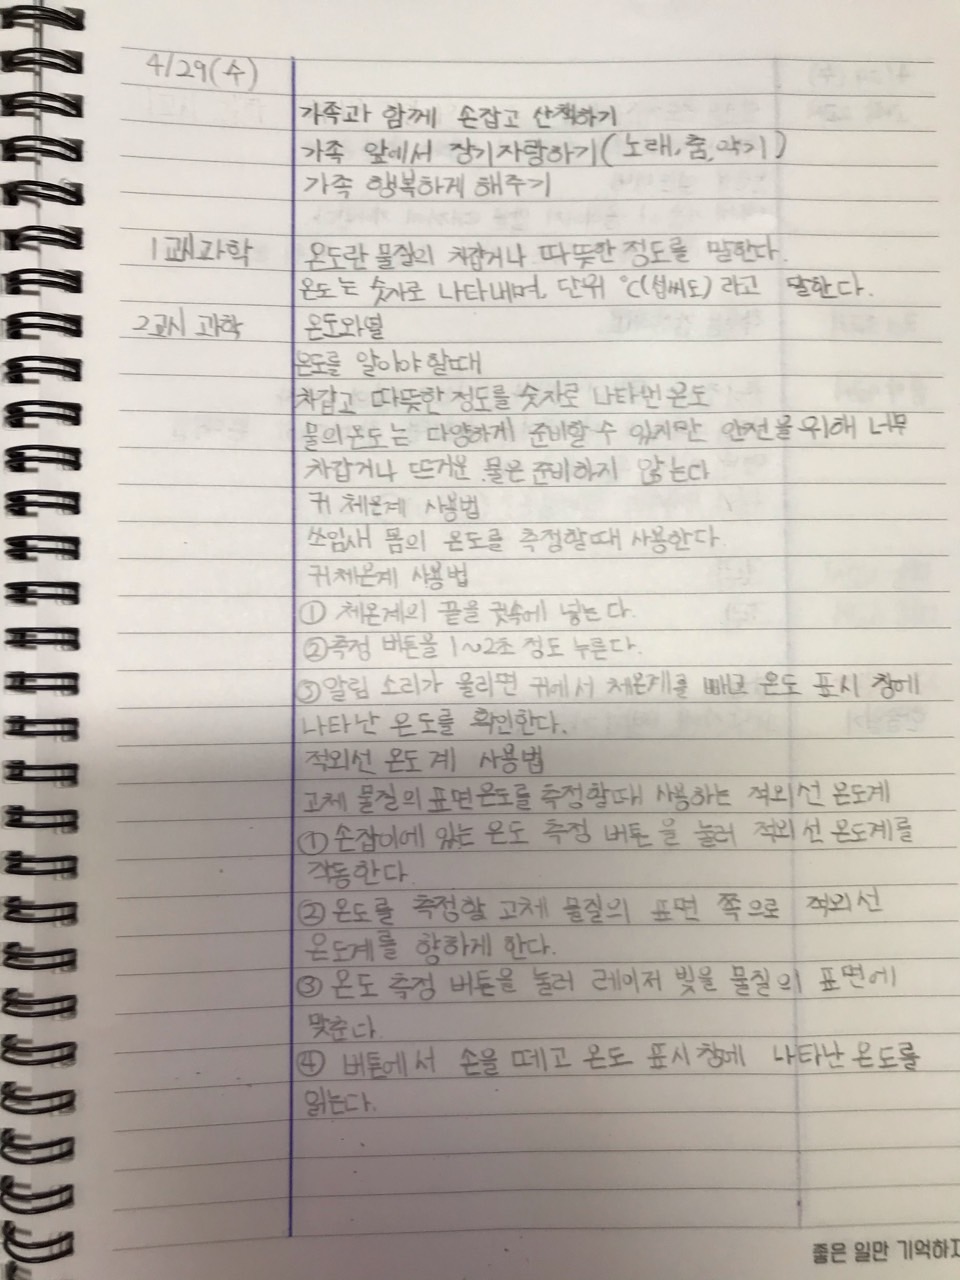 4/29(수)
가족과 함께 손잡고 산책하기
가족 앞에서 장기자랑하기(노래, 춤, 악기)
가족 행복하게 해주기
1교시 과학 온도란 물질의 차갑거나 따뜻한 정도를 말한다.
온도는 숫자로 나타내며, 단위 ℃(섭씨도) 라고 말한다.
2교시 과학 온도와열
온도를 알아야 할때
차갑고 따뜻한 정도를 숫자로 나타낸 온도
물의온도는 다양하게 준비할 수 있지만 안전을 위해 너무
차갑거나 뜨거운 물은 준비하지 않는다
귀 체온계 사용법
쓰임새 몸의 온도를 측정할때 사용한다.
귀체온계 사용법
① 체온계의 끝을 귓속에 넣는다.
② 측정 버튼을 1~2초 정도 누른다.
③ 알림 소리가 울리면 귀에서 체온계를 빼고 온도 표시 창에
나타난 온도를 확인한다.
적외선 온도계 사용법
고체 물질의 표면온도를 측정할때 사용하는 적외선 온도계
① 손잡이에 있는 온도 측정 버튼을 눌러 적외선 온도계를
작동한다.
② 온도를 측정할 고체 물질의 표면 쪽으로 적외선
온도계를 향하게 한다.
③ 온도 측정 버튼을 눌러 레이저 빛을 물질의 표면에
맞춘다.
④ 버튼에서 손을 떼고 온도 표시창에 나타난 온도를
읽는다.
좋은 일만 기억하지